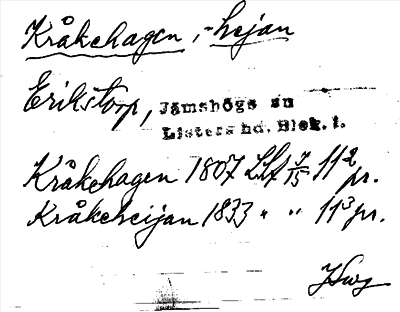 Kråkehagen, -hejan
Erikstorp, Jämshögs sn
Listers hd. Blek. l.
Kråkehagen 1807 Lskf 7/15 11² pr.
Kråkeheijan 1833 " " 11³ pr.